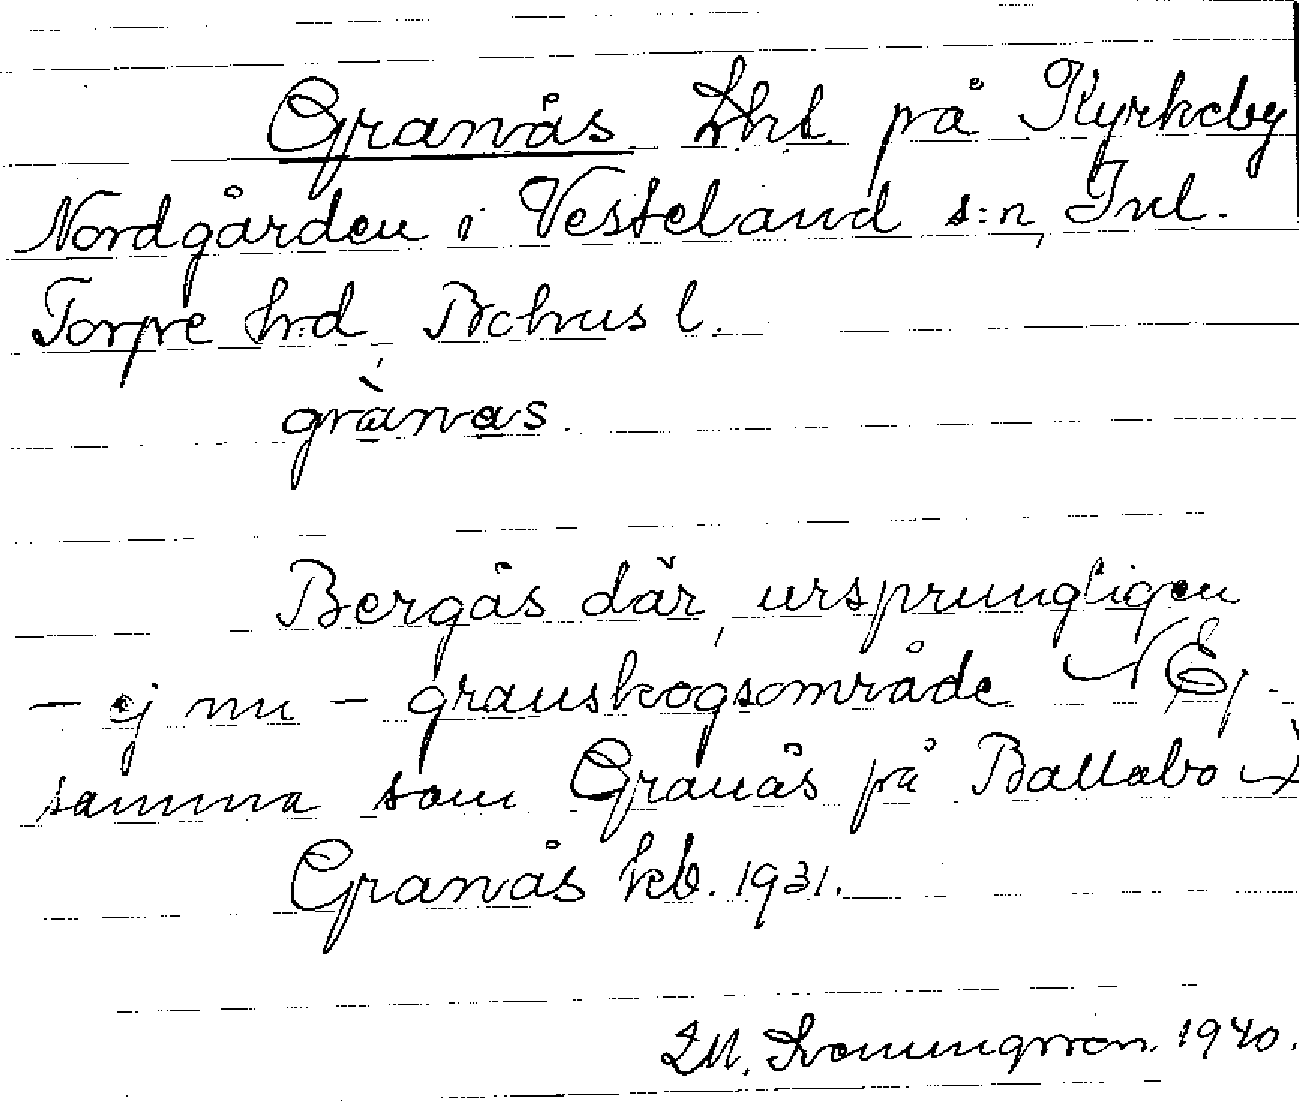 Granås. Lht. på Kyrkeby
Nordgården i Västerland s:n, Inl.
Torpe hrd, Bohus l.
grànas.
Bergås där, ursprungligen
- ej nu - granskogsområde (Ej
samma som Granås på Ballabo)
Granås kb. 1931.
1940.